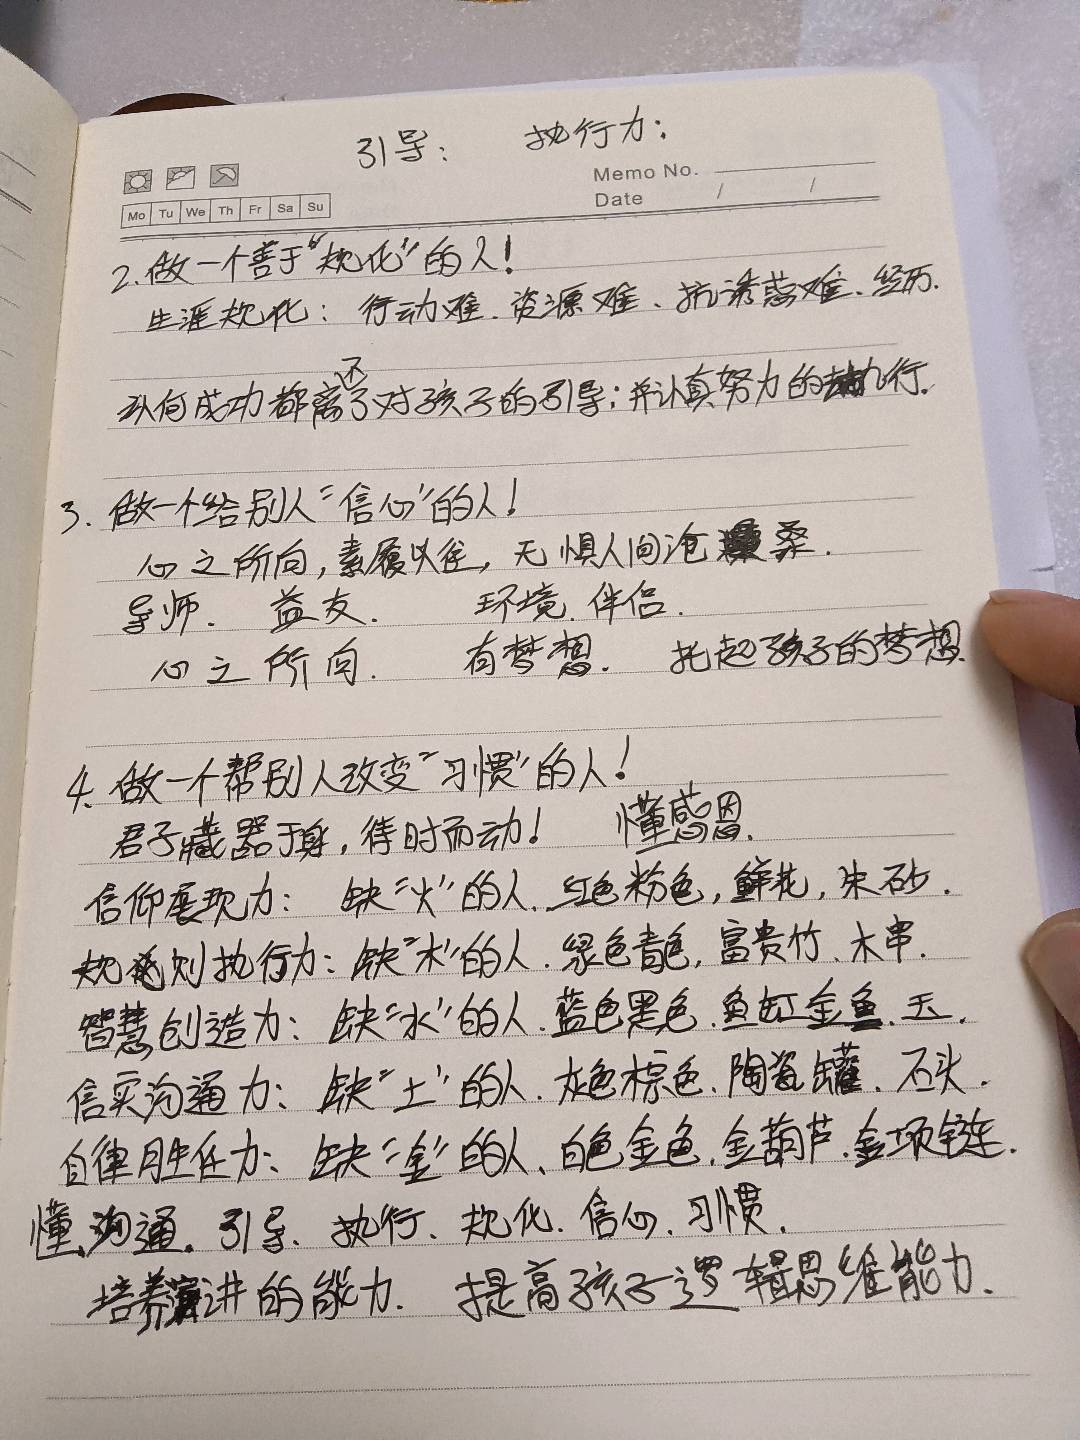 引导： 执行力：
Memo No.
Mo Tu We Th Fr Sa Su
Date / /
2.做一个善于“规化”的人！
生涯规化： 行动难、资源难、抗诱惑难、经历.
任何成功都离不了对孩子的引导；并认真努力的执行.
3. 做一个给别人“信心”的人！
心之所向，素履以往，无惧人间沧桑.
导师. 益友. 环境. 伴侣.
心之所向. 有梦想. 托起孩子的梦想.
4. 做一个帮别人改变“习惯”的人！
君子藏器于身，待时而动！ 懂感恩.
信仰展现力： 缺“火”的人. 红色粉色，鲜花，朱砂.
规划执行力：缺“木”的人. 绿色青色，富贵竹、木串.
智慧创造力：缺“水”的人. 蓝色黑色. 鱼缸金鱼. 玉.
信实沟通力：缺“土”的人. 灰色棕色. 陶瓷罐. 石头.
自律胜任力：缺“金”的人、白色金色. 金葫芦. 金项链.
懂沟通. 引导、执行、规化. 信心. 习惯.
培养演讲的能力. 提高孩子逻辑思维能力.